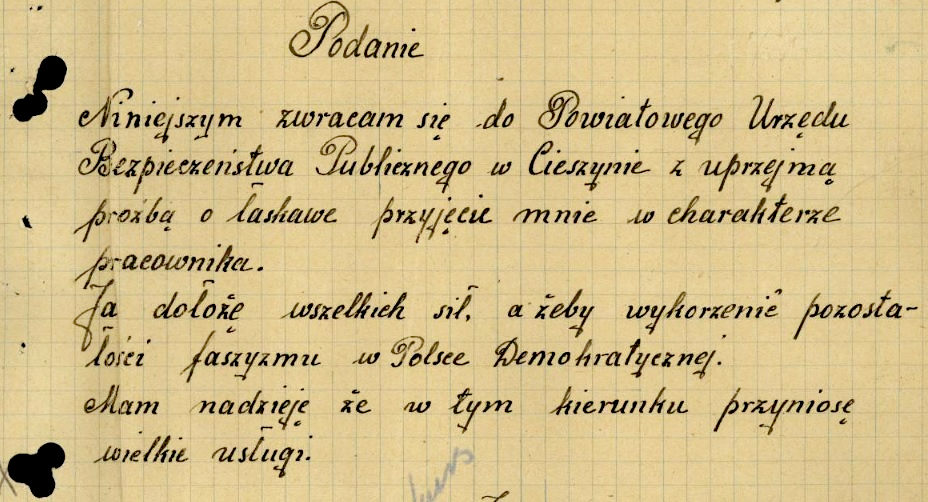 Podanie
Niniejszym zwracam się do Powiatowego Urzędu
Bezpieczeństwa Publicznego w Cieszynie z uprzejmą
proźbą o łaskawe przyjęcie mnie w charakterze
pracownika.
Ja dołożę wszelkich sił, a żeby wykorzenić pozosta-
łości faszyzmu w Polsce Demokratycznej.
Mam nadzieję że w tym kierunku przyniosę
wielkie usługi.